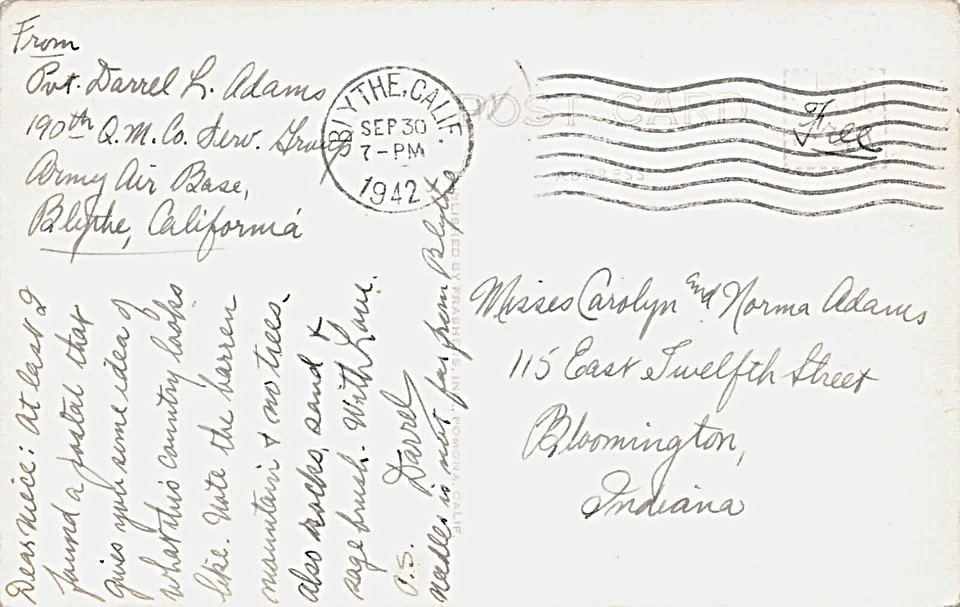 From
Pvt. Darrel L. Adams
190th Q.M. Co. Serv. Group
Army Air Base,
Blythe, California
BLYTHE, CALIF.
SEP 30
7-PM
1942
POST CARD
ADDRESS
Free
Misses Carolyn and Norma Adams
115 East Twelfth Street
Bloomington,
Indiana
Dear Niece: At last I
found a postal that
gives you some idea of
what this country looks
like. Note the barren
mountain & no trees.
Also rocks, sand &
sage brush. With Love.
Darrel
P.S.
Needles is not far from Blythe
PUBLISHED BY FRASHERS, INC., POMONA, CALIF.